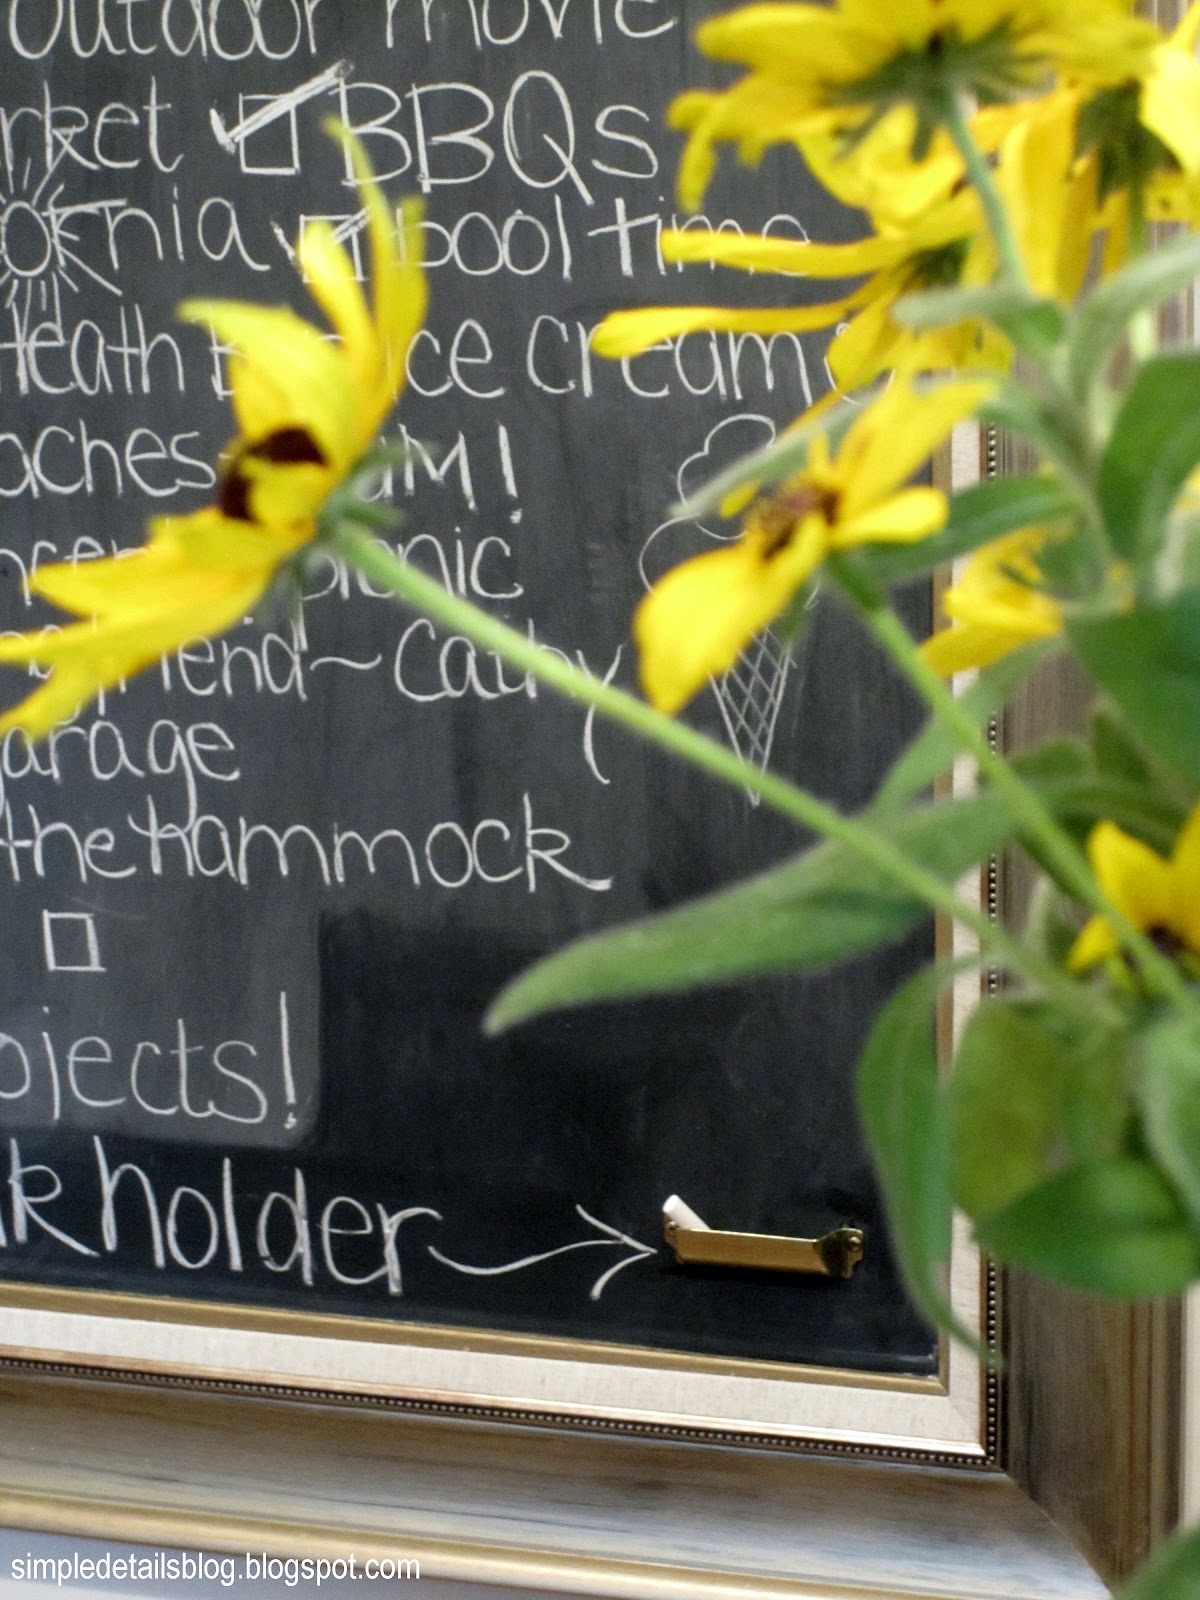 outdoor movie
rket BBQs
rnia pool time
Heath B ice cream
aches UM!
picnic
friend ~ Cathy
garage
the Hammock
ojects!
lk holder
simpledetailsblog.blogspot.com